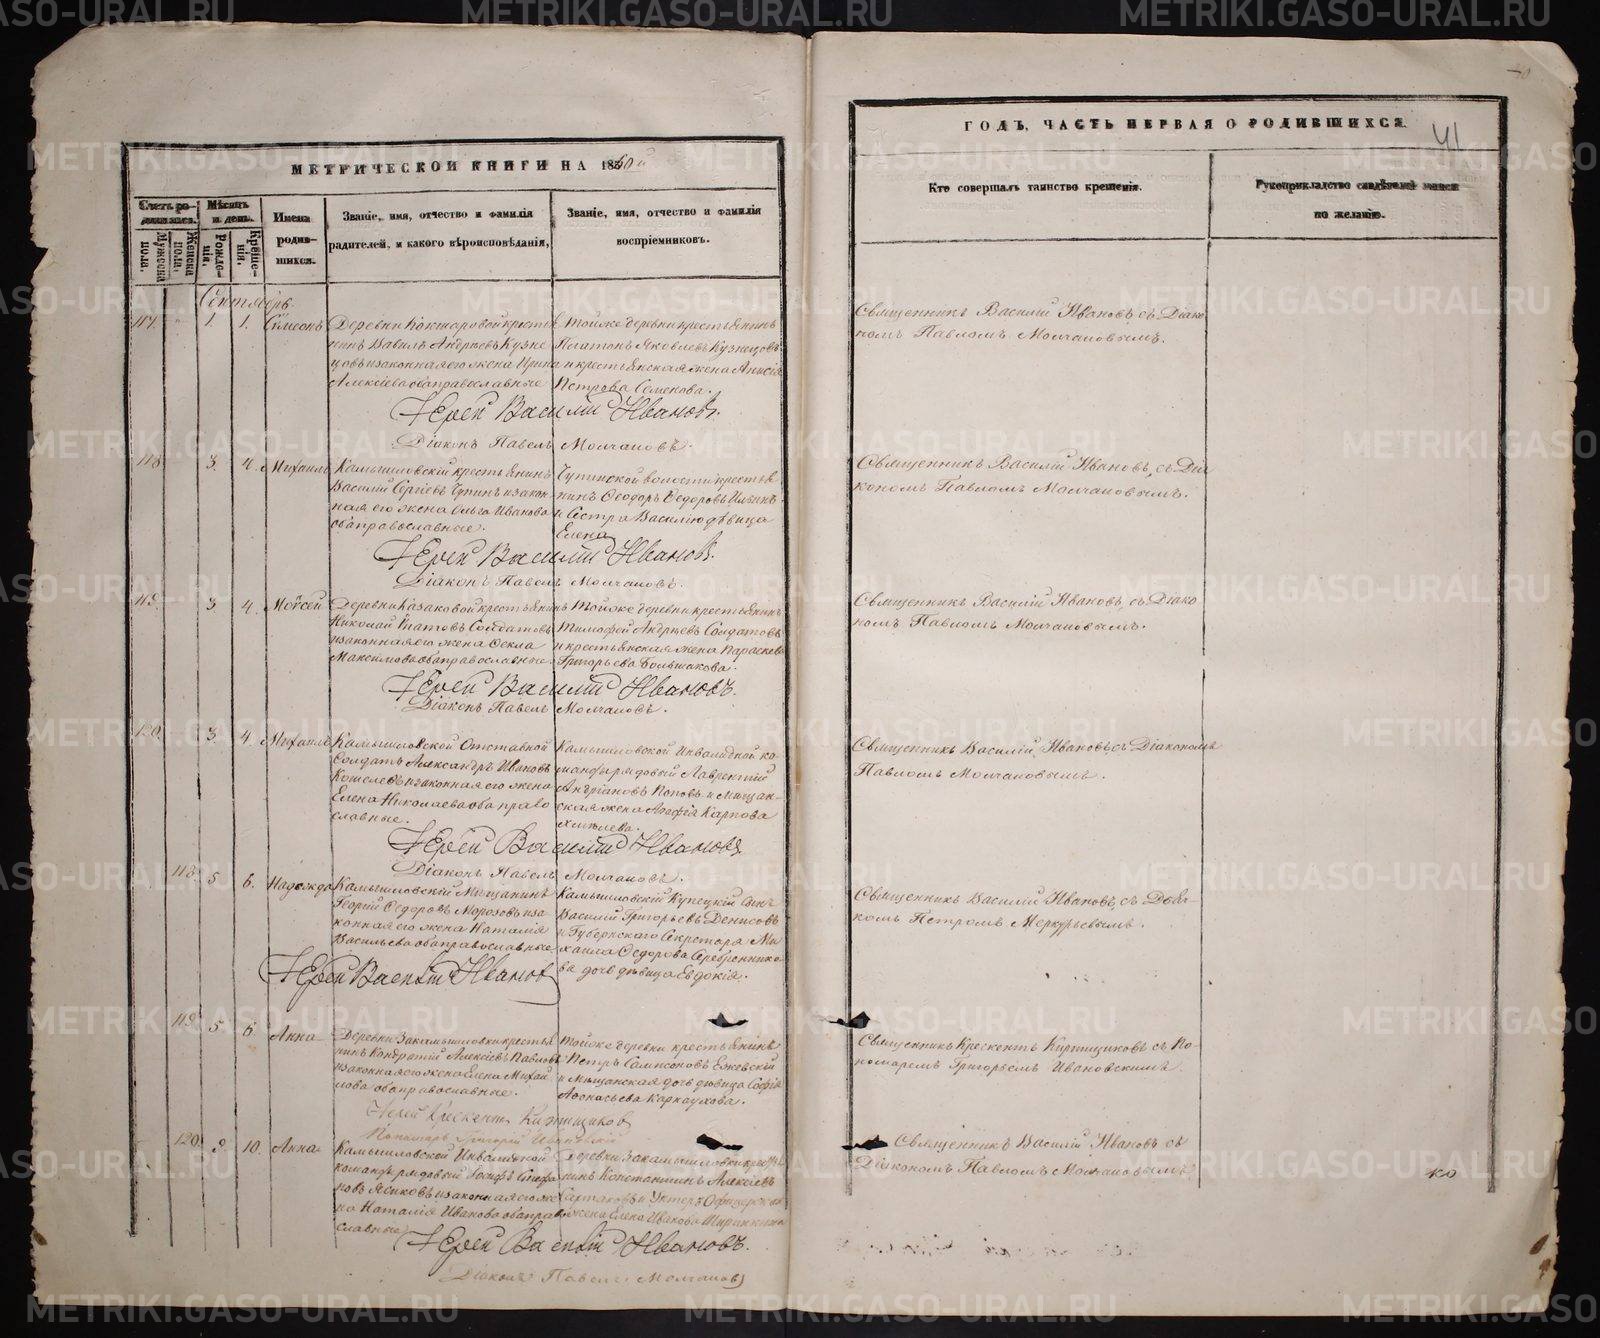 МЕТРИЧЕСКОЙ КНИГИ НА 1860й
ГОДЪ, ЧАСТЬ ПЕРВАЯ О РОДИВШИХСЯ.
41
Счетъ родившихся.
Мужеска пола.
Женска пола.
Мѣсяцъ и день.
Рожденія.
Крещенія.
Имена родившихся.
Званіе, имя, отчество и фамилія
родителей, и какого вѣроисповѣданія,
Званіе, имя, отчество и фамилія
воспріемниковъ.
Кто совершалъ таинство крещенія.
Рукоприкладство свидѣтелей записи
по желанію.
Сентябрь
117. 1. 1. Сѵмеонъ
Деревни Кокшаровой крестья
нинъ Вавилъ Андреевъ Кузне
цовъ и законная его жена Ирина
Алексіева оба православные
Тойже деревни крестьянинъ
Платонъ Яковлевъ Кузнецовъ
и крестьянская жена Анисія
Петрова Семенова.
Священникъ Василій Ивановъ съ Діако
номъ Павломъ Молчановымъ.
Іерей Василій Ивановъ.
Діаконъ Павелъ Молчановъ.
118. 3. 4. Михаилъ
Камышловскій крестьянинъ
Василій Сергіевъ Чупинъ и закон
ная его жена Ольга Иванова
оба православные.
Чупинской волости крестья
нинъ Ѳеодоръ Ѳедоровъ Ильинъ
и Сестра Василію дѣвица
Елена
Священникъ Василій Ивановъ, съ Діа
кономъ Павломъ Молчановымъ.
Іерей Василій Ивановъ.
Діаконъ Павелъ Молчановъ.
119. 3 4. Моѵсей
Деревни Казаковой крестьянинъ
Николай Ипатовъ Солдатовъ
и законная его жена Ѳекла
Максимова оба православные.
Тойже деревни крестьянинъ
Тимофей Андреевъ Солдатовъ
и крестьянская жена Параскева
Григорьева Большакова.
Священникъ Василій Ивановъ, съ Діако
номъ Павломъ Молчановымъ.
Іерей Василій Ивановъ.
Діаконъ Павелъ Молчановъ.
120. 3. 4. Михаилъ
Камышловской Отставной
Солдатъ Александръ Ивановъ
Кошелевъ и законная его жена
Елена Николаева оба право
славные.
Камышловской Инвалидной ко
манды рядовый Лаврентій
Андріановъ Поповъ и Мѣщан-
ская жена Агафія Карпова
Священникъ Василій Ивановъ, съ Діакономъ
Павломъ Молчановымъ.
Іерей Василій Ивановъ.
Діаконъ Павелъ Молчановъ.
118. 5 6. Надежда
Камышловскій Мѣщанинъ
Георгій Ѳедоровъ Морозовъ и за
конная его жена Наталія
Васильева оба православные
Камышловскій Купеческій Сынъ
Василій Григорьевъ Денисовъ
и Губернскаго Секретаря Ми
хаила Ѳедорова Серебреннико
ва дочь дѣвица Евдокія.
Священникъ Василій Ивановъ, съ Дьяч-
комъ Петромъ Меркурьевымъ.
Іерей Василій Ивановъ
119. 5. 6. Анна
Деревни Закамышловки крестья
нинъ Кондратій Алексіевъ Павловъ
и законная его жена Елена Михай
лова оба православные.
Тойже деревни крестьянинъ
Петръ Сампсоновъ Ежевскій
и мѣщанская дочь дѣвица Софія
Афонасьева Карнаухова.
Священникъ Крескентъ Киртщиковъ съ По
номаремъ Григорьемъ Ивановскимъ.
Іерей Крескентъ Киртщиковъ
Пономарь Григорій Ивановскій
120. 9. 10. Анна
Камышловской Инвалидной
команды рядовый Іосифъ Стефа
новъ Ясиковъ и законная его же
на Наталія Иванова оба право
славные
Деревни Закамышловки крестья
нинъ Константинъ Алексіевъ
и Унтеръ Офицерская
жена Елена Иванова
Священникъ Василій Ивановъ съ
Діакономъ Павломъ Молчановымъ
Іерей Василій Ивановъ.
Діаконъ Павелъ Молчановъ
METRIKI.GASO-URAL.RU